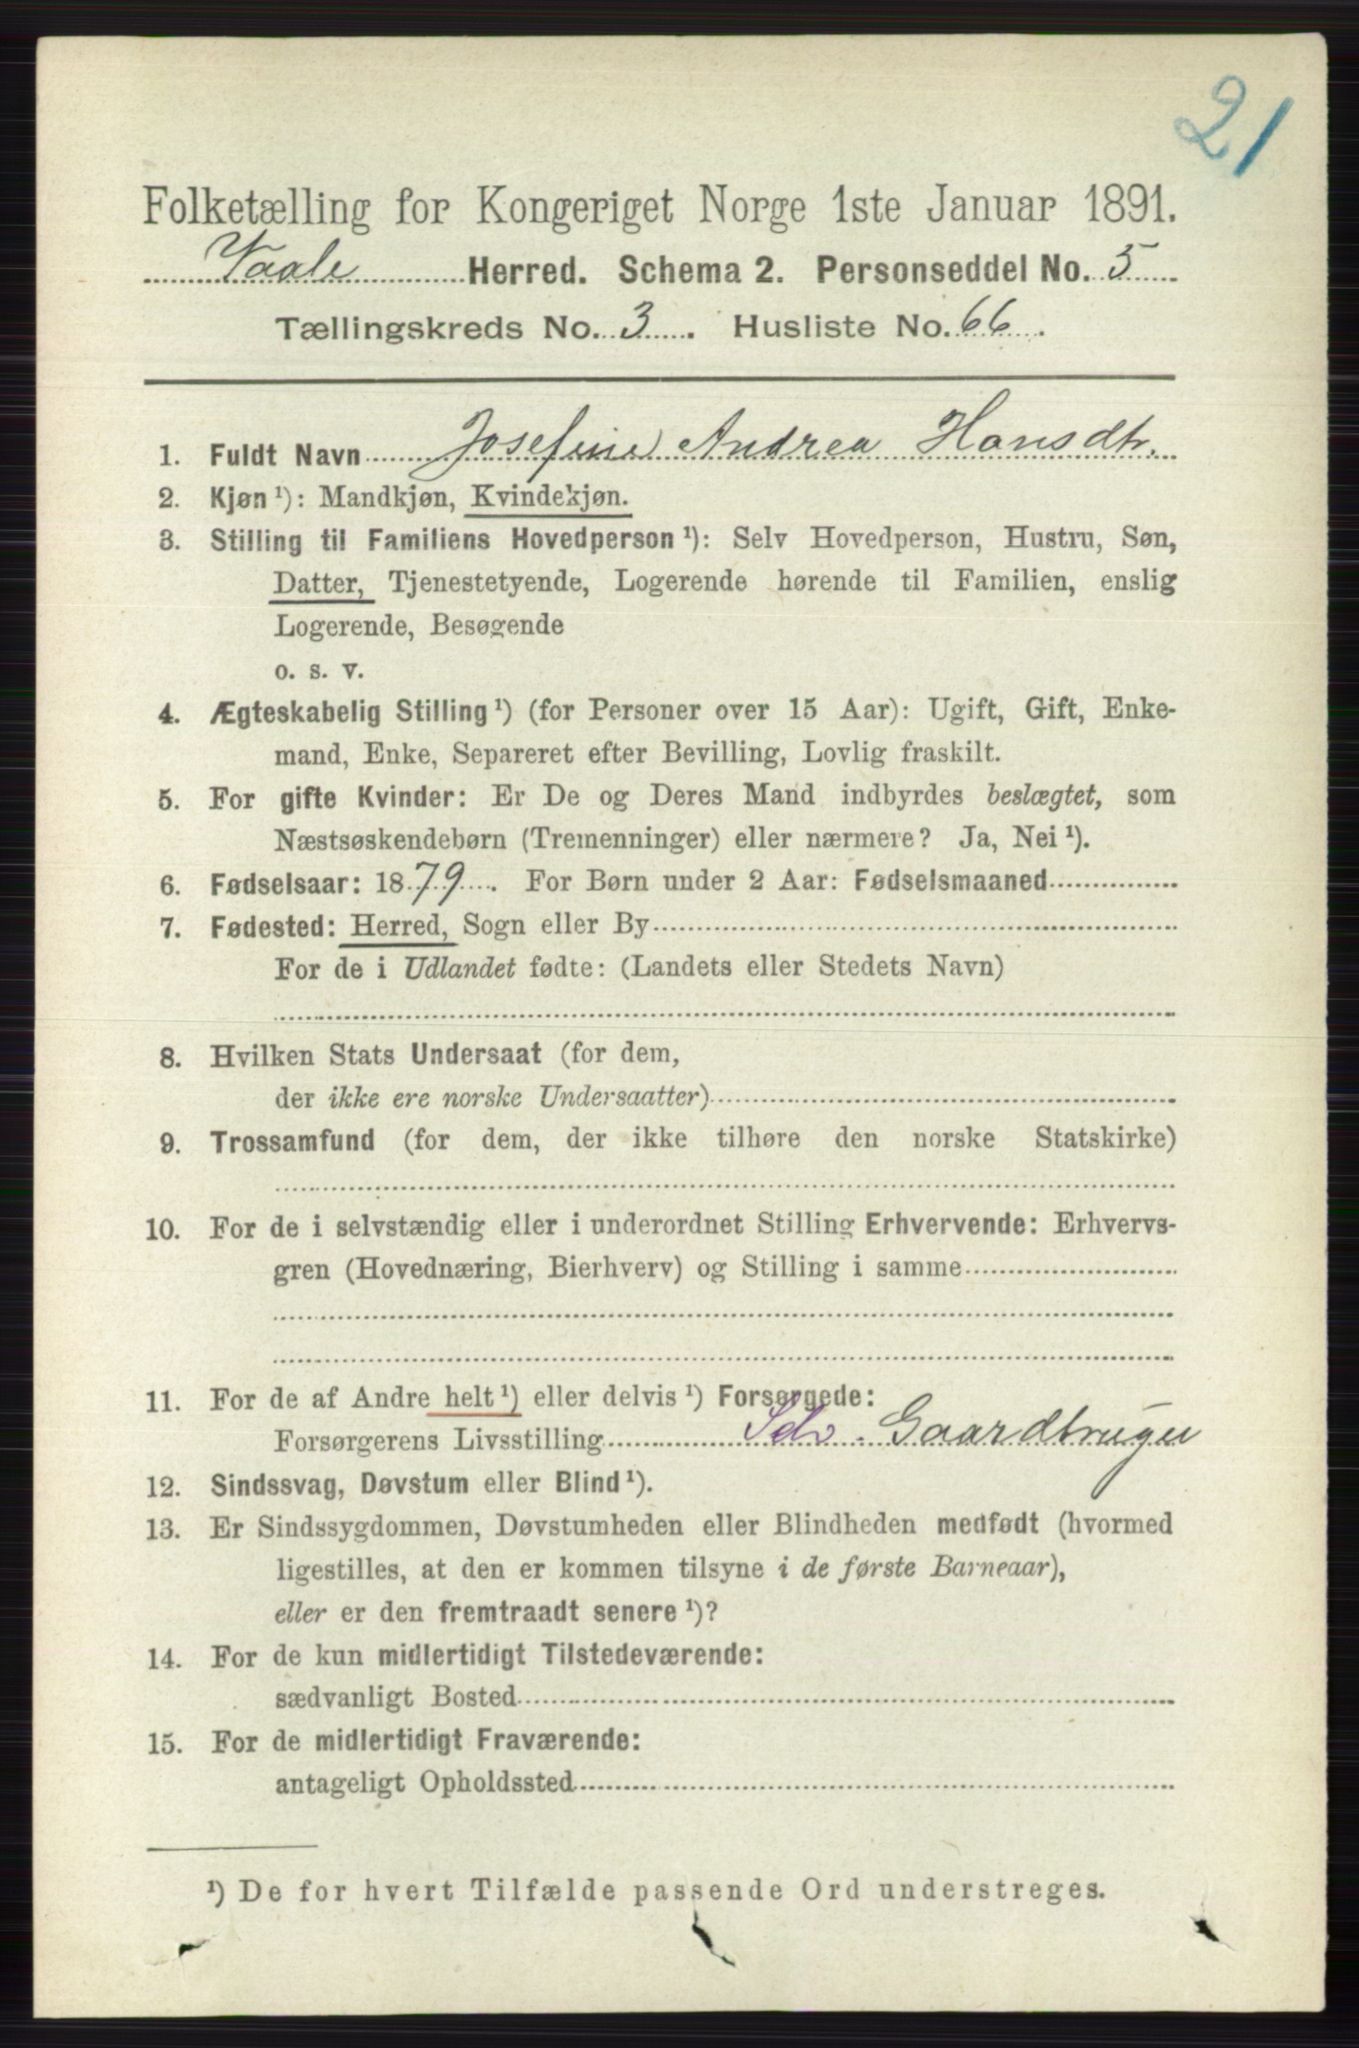 21
Folketælling for Kongeriget Norge 1ste Januar 1891.
Vaale Herred. Schema 2. Personseddel No. 5
Tællingskreds No. 3. Husliste No. 66.
1. Fuldt Navn Josefine Andrea Hansdtr.
2. Kjøn ¹): Mandkjøn, Kvindekjøn.
3. Stilling til Familiens Hovedperson ¹): Selv Hovedperson, Hustru, Søn,
Datter, Tjenestetyende, Logerende hørende til Familien, enslig
Logerende, Besøgende
o. s. v.
4. Ægteskabelig Stilling ¹) (for Personer over 15 Aar): Ugift, Gift, Enke-
mand, Enke, Separeret efter Bevilling, Lovlig fraskilt.
5. For gifte Kvinder: Er De og Deres Mand indbyrdes beslægtet, som
Næstsøskendebørn (Tremenninger) eller nærmere? Ja, Nei ¹).
6. Fødselsaar: 1879. For Børn under 2 Aar: Fødselsmaaned
7. Fødested: Herred, Sogn eller By
For de i Udlandet fødte: (Landets eller Stedets Navn)
8. Hvilken Stats Undersaat (for dem,
der ikke ere norske Undersaatter)
9. Trossamfund (for dem, der ikke tilhøre den norske Statskirke)
10. For de i selvstændig eller i underordnet Stilling Erhvervende: Erhvervs-
gren (Hovednæring, Bierhverv) og Stilling i samme
11. For de af Andre helt ¹) eller delvis ¹) Forsørgede:
Forsørgerens Livsstilling Selv. Gaardbruger
12. Sindssvag, Døvstum eller Blind ¹).
13. Er Sindssygdommen, Døvstumheden eller Blindheden medfødt (hvormed
ligestilles, at den er kommen tilsyne i de første Barneaar),
eller er den fremtraadt senere ¹)?
14. For de kun midlertidigt Tilstedeværende:
sædvanligt Bosted
15. For de midlertidigt Fraværende:
antageligt Opholdssted
¹) De for hvert Tilfælde passende Ord understreges.